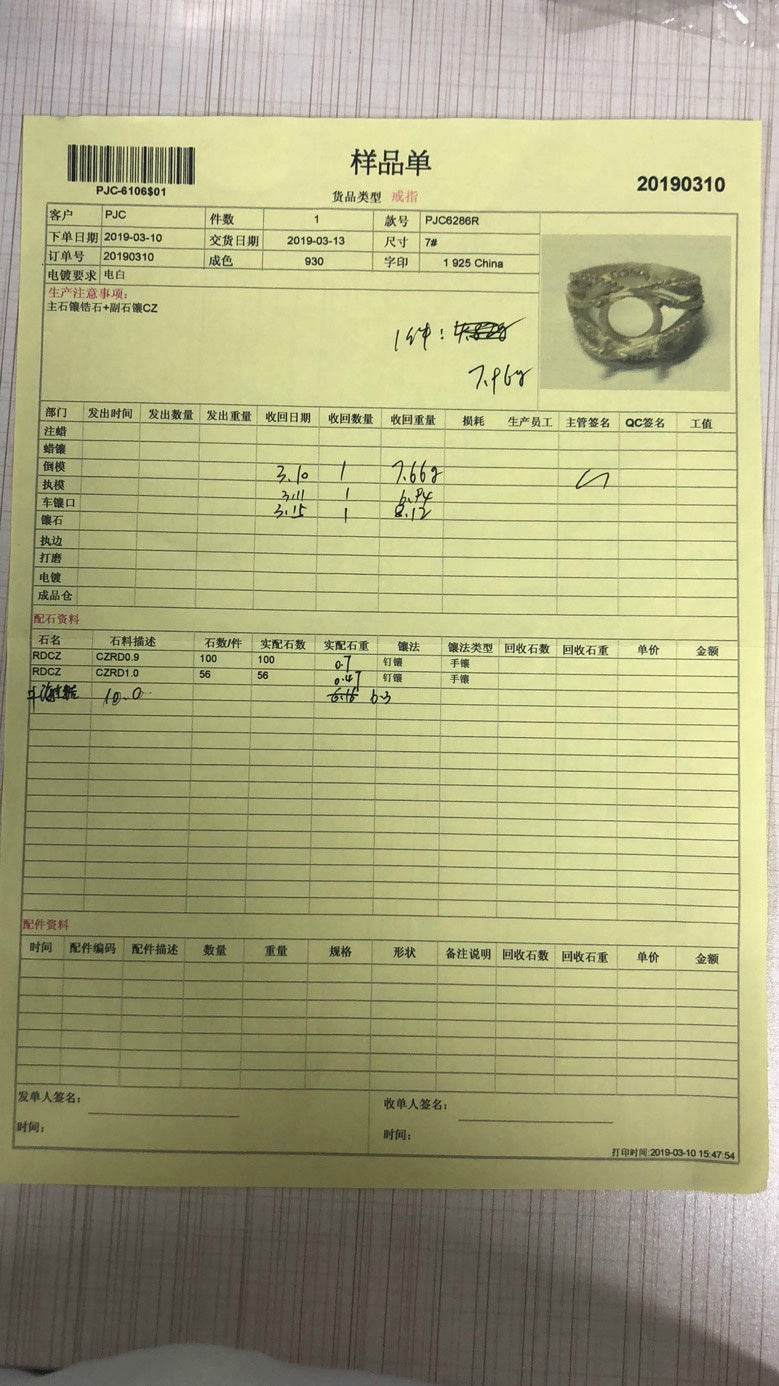 样品单
PJC-6106$01
货品类型 戒指
20190310
客户 PJC 件数 1 款号 PJC6286R
下单日期 2019-03-10 交货日期 2019-03-13 尺寸 7#
订单号 20190310 成色 930 字印 1 925 China
电镀要求 电白
生产注意事项:
主石镶锆石+副石镶CZ
1件:
7.96g
部门 发出时间 发出数量 发出重量 收回日期 收回数量 收回重量 损耗 生产员工 主管签名 QC签名 工值
注蜡
蜡镶
倒模 3.10 1 7.66g
执模 3.11 1 6.94
车镶口 3.15 1 8.12
镶石
执边
打磨
电镀
成品仓
配石资料
石名 石料描述 石数/件 实配石数 实配石重 镶法 镶法类型 回收石数 回收石重 单价 金额
RDCZ CZRD0.9 100 100 0.7 钉镶 手镶
RDCZ CZRD1.0 56 56 0.47 钉镶 手镶
10.0 6.3
配件资料
时间 配件编码 配件描述 数量 重量 规格 形状 备注说明 回收石数 回收石重 单价 金额
发单人签名: 收单人签名:
时间: 时间:
打印时间:2019-03-10 15:47:54